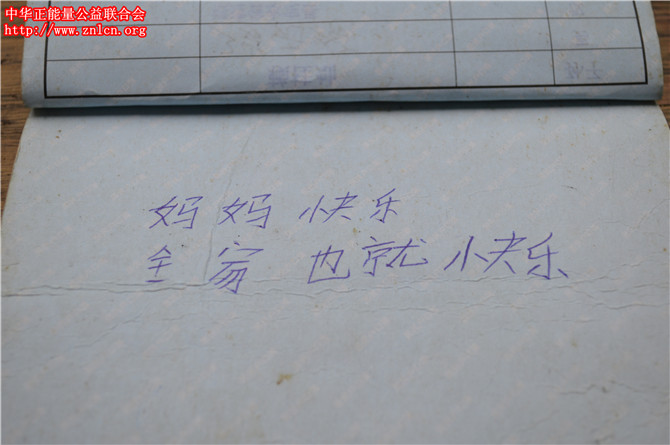 中华正能量公益联合会
www.znlcn.org
妈妈快乐
全家也就快乐